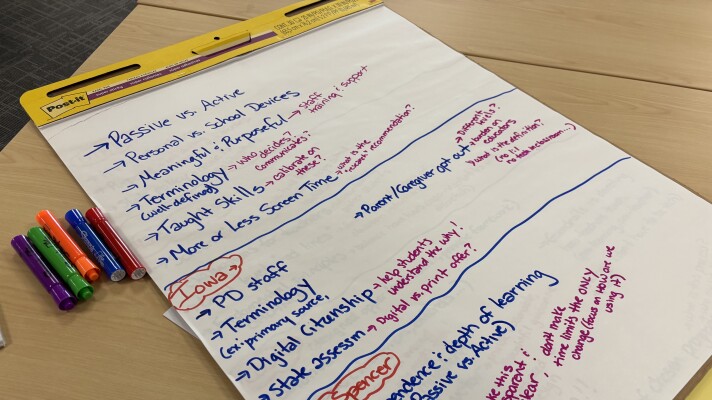 Post-it
→ Passive vs. Active
→ Personal vs. School Devices
→ Meaningful & Purposeful → staff
training & support
→ Terminology → who decides?
(well-defined) communicates?
→ Taught Skills → calibrate on
these?
→ More or Less Screen Time → what is the
"screen" recommendation?
→ Parent/Caregiver opt out → Different
levels?
→ burden on
educators
→ what is the definition?
(no 1:1
Iowa →
→ PD staff
→ Terminology
(ex: primary source,
→ Digital Citizenship → help students
understand the why!
→ State assessm → Digital vs. print offer?
Spencer
pendence & depth of learning
Passive vs. Active)
ke this
parent &
lear
don't make
time limits the ONLY
change (focus on HOW are we
using it)